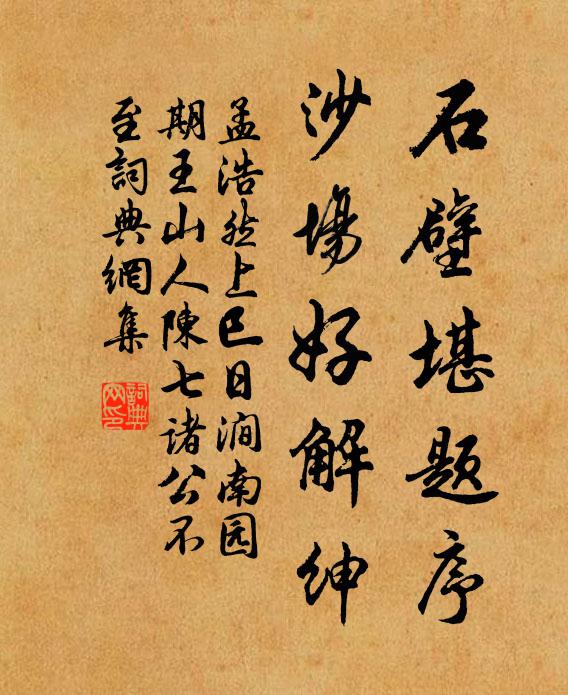 石壁堪题序
沙場好解紳
孟浩然上巳日澗南园
期王山人陳七诸公不
至詞典網集
詞典网印